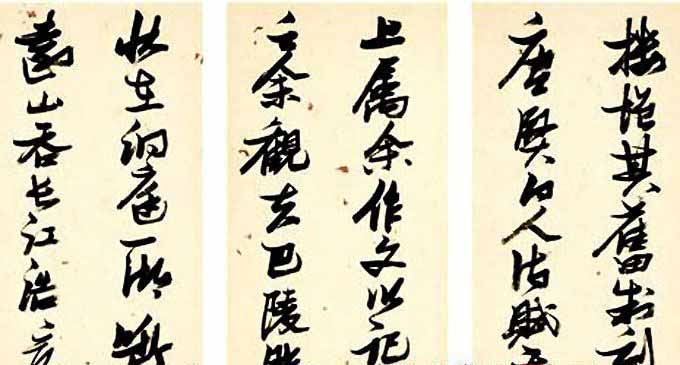 楼增其舊制刻
唐賢今人詩賦于
上属余作文以記
之余觀夫巴陵勝
状在洞庭一湖銜
遠山吞长江浩